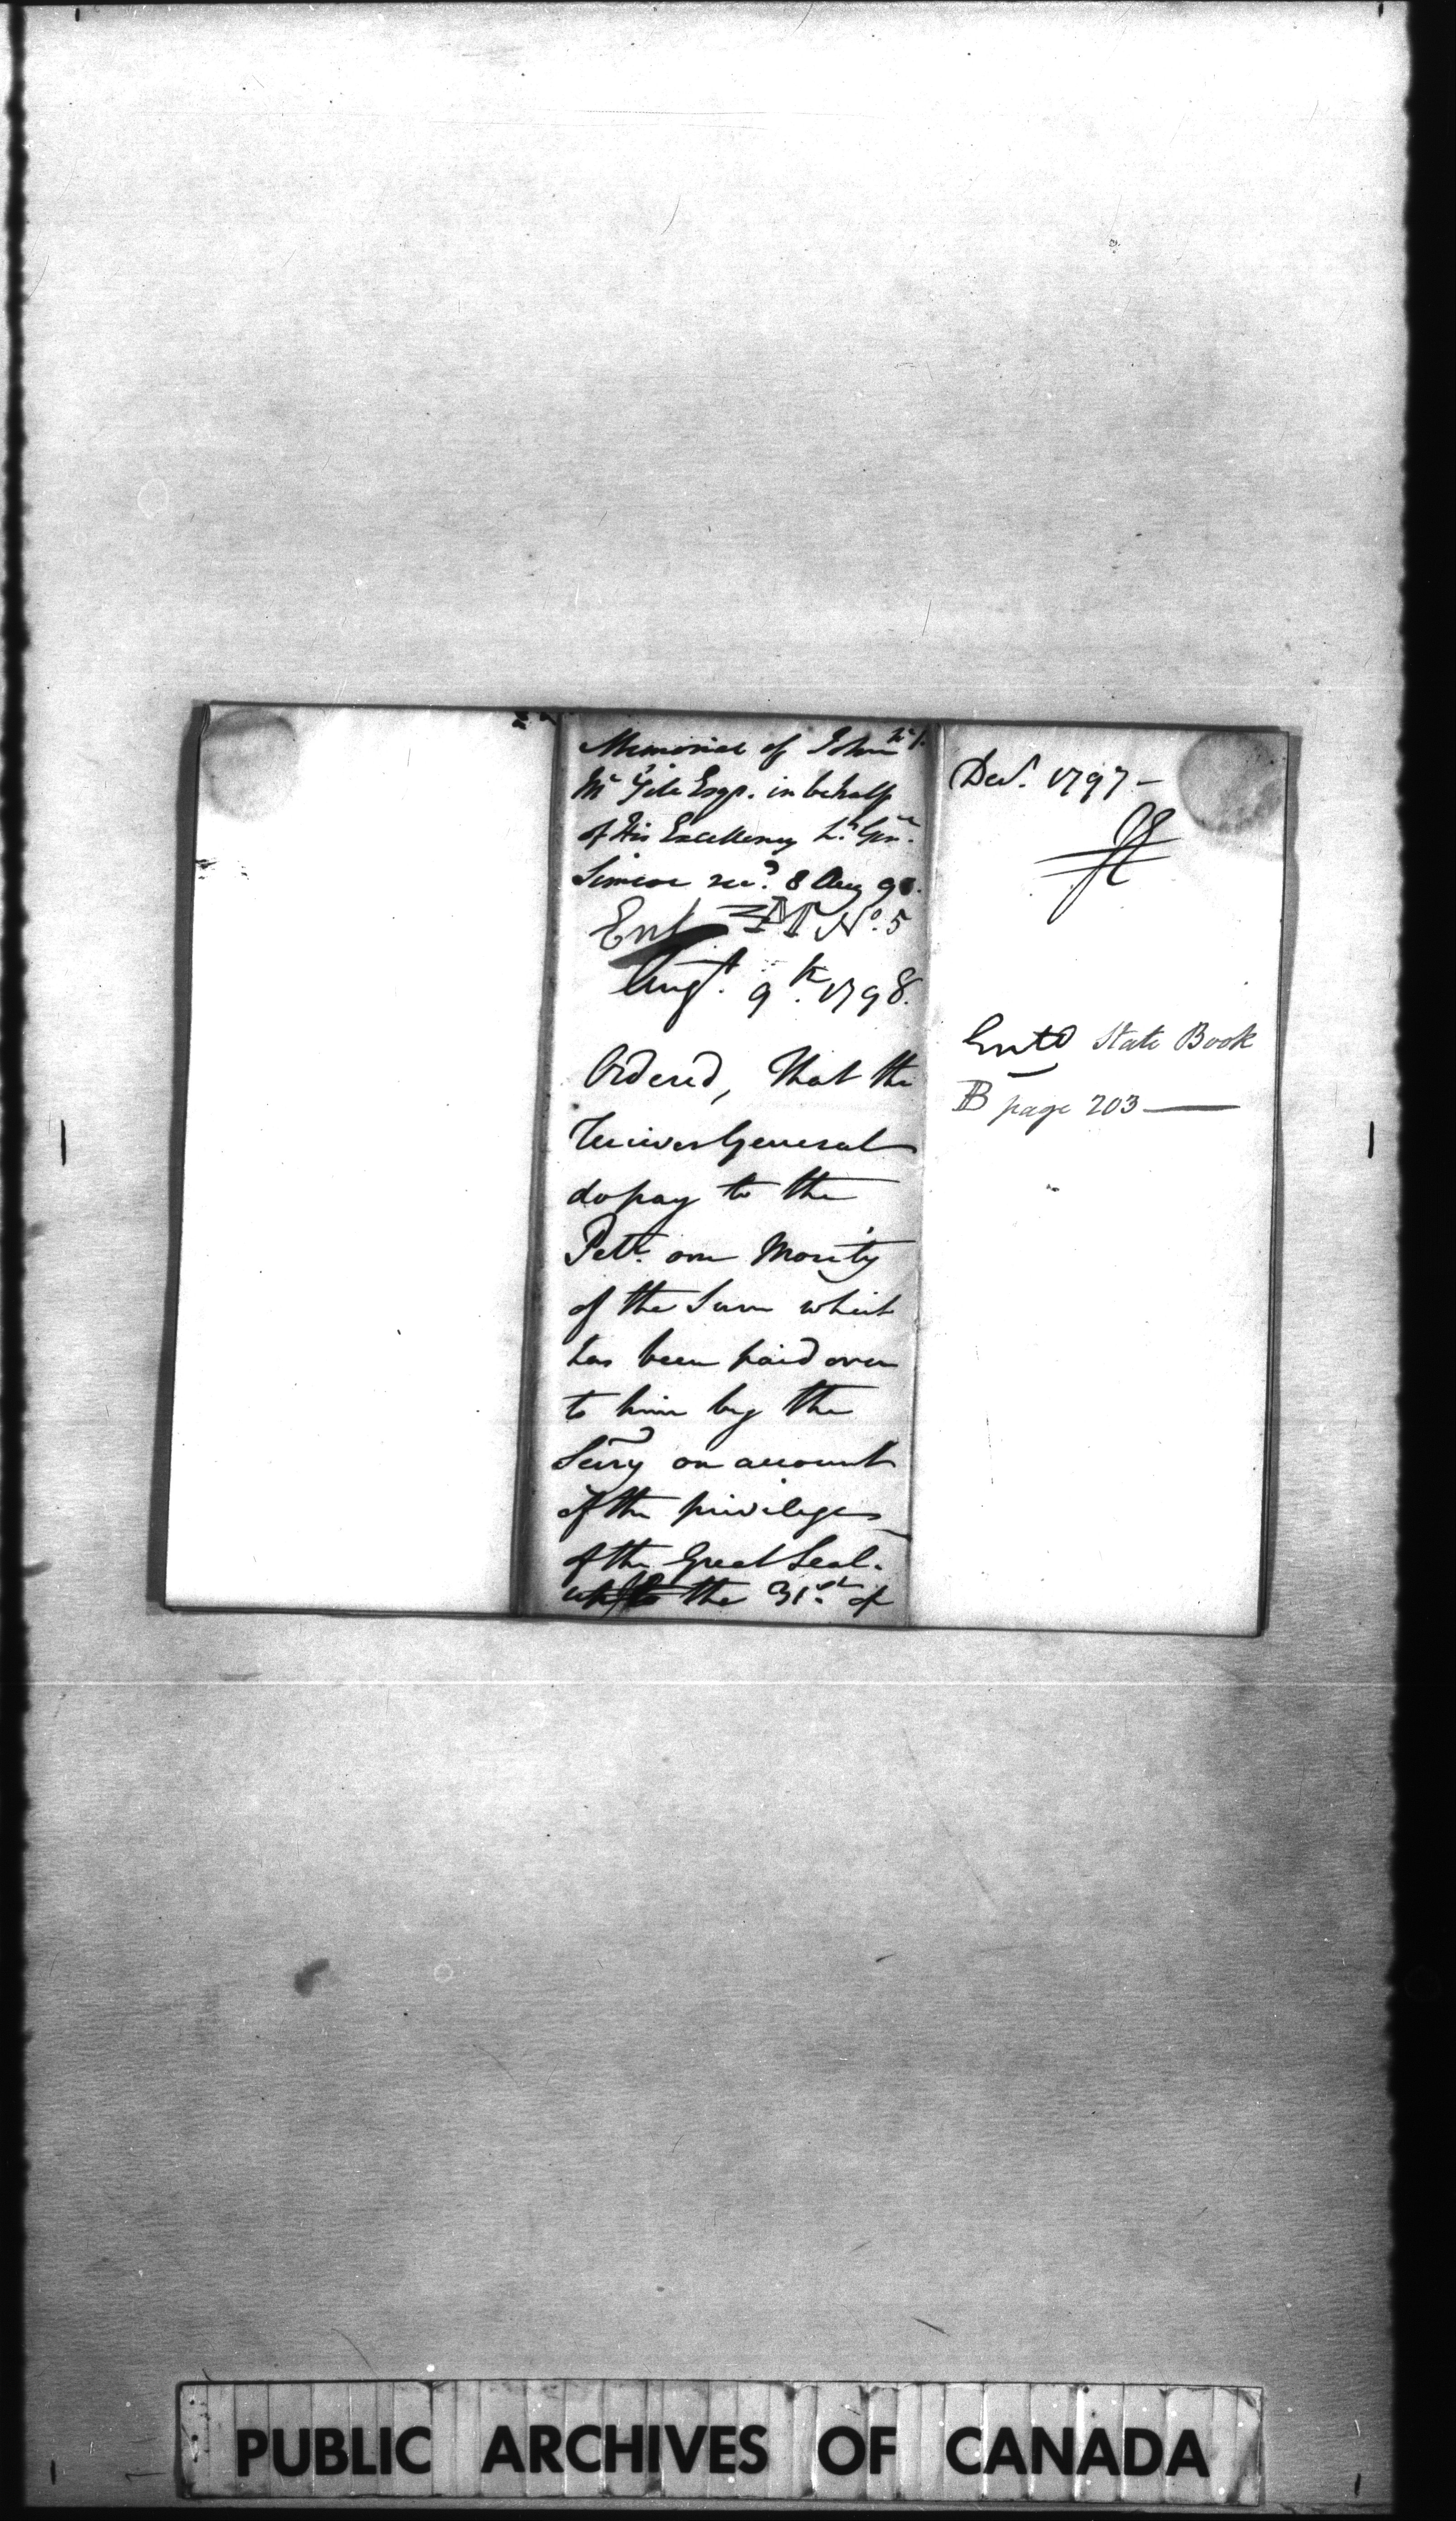 Memorial of John No 1.
Mc Gill Esqr. in behalf
of His Excellency Lt. Genl.
Simcoe recd. 8 Aug 98.
Ent No. 5
Augt. 9th. 1798.
Ordered, That the
Receiver General
do pay to the
Petr. one Moiety
of the Sum which
has been paid over
to him by the
Secry on account
of the privileges
of the Great Seal.
up to the 31st. of
Decr. 1797 -
Entd State Book
B page 203 —
PUBLIC ARCHIVES OF CANADA